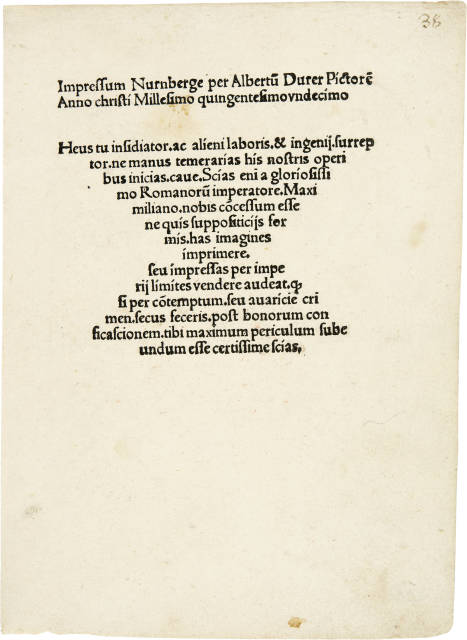 38
Impreſſum Nurnberge per Albertū Durer Pictorē
Anno chriſti Milleſimo quingenteſimovndecimo
Heus tu inſidiator.ac alieni laboris.& ingenij.ſurrep
tor.ne manus temerarias his noſtris operi
bus inicias.caue.Scias eni a glorioſiſſi
mo Romanorū imperatore.Maxi
miliano.nobis cōceſſum eſſe
ne quis ſuppoſiticijs for
mis.has imagines
imprimere.
ſeu impreſſas per impe
rij limites vendere audeat.ꝙ
ſi per cōtemptum.ſeu auaricie cri
men.ſecus feceris.poſt bonorum con
ficaſcionem.tibi maximum periculum ſube
undum eſſe certiſſime ſcias.